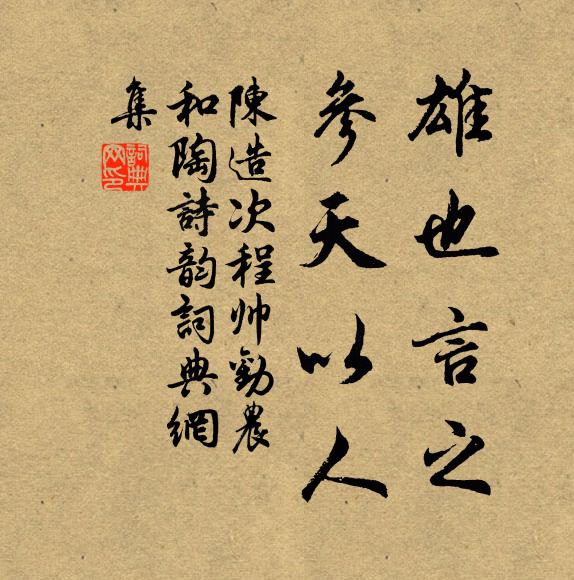 雄也言之
參天以人
陳造次程帅勸農
和陶詩韵詞典網
集
詞典网印